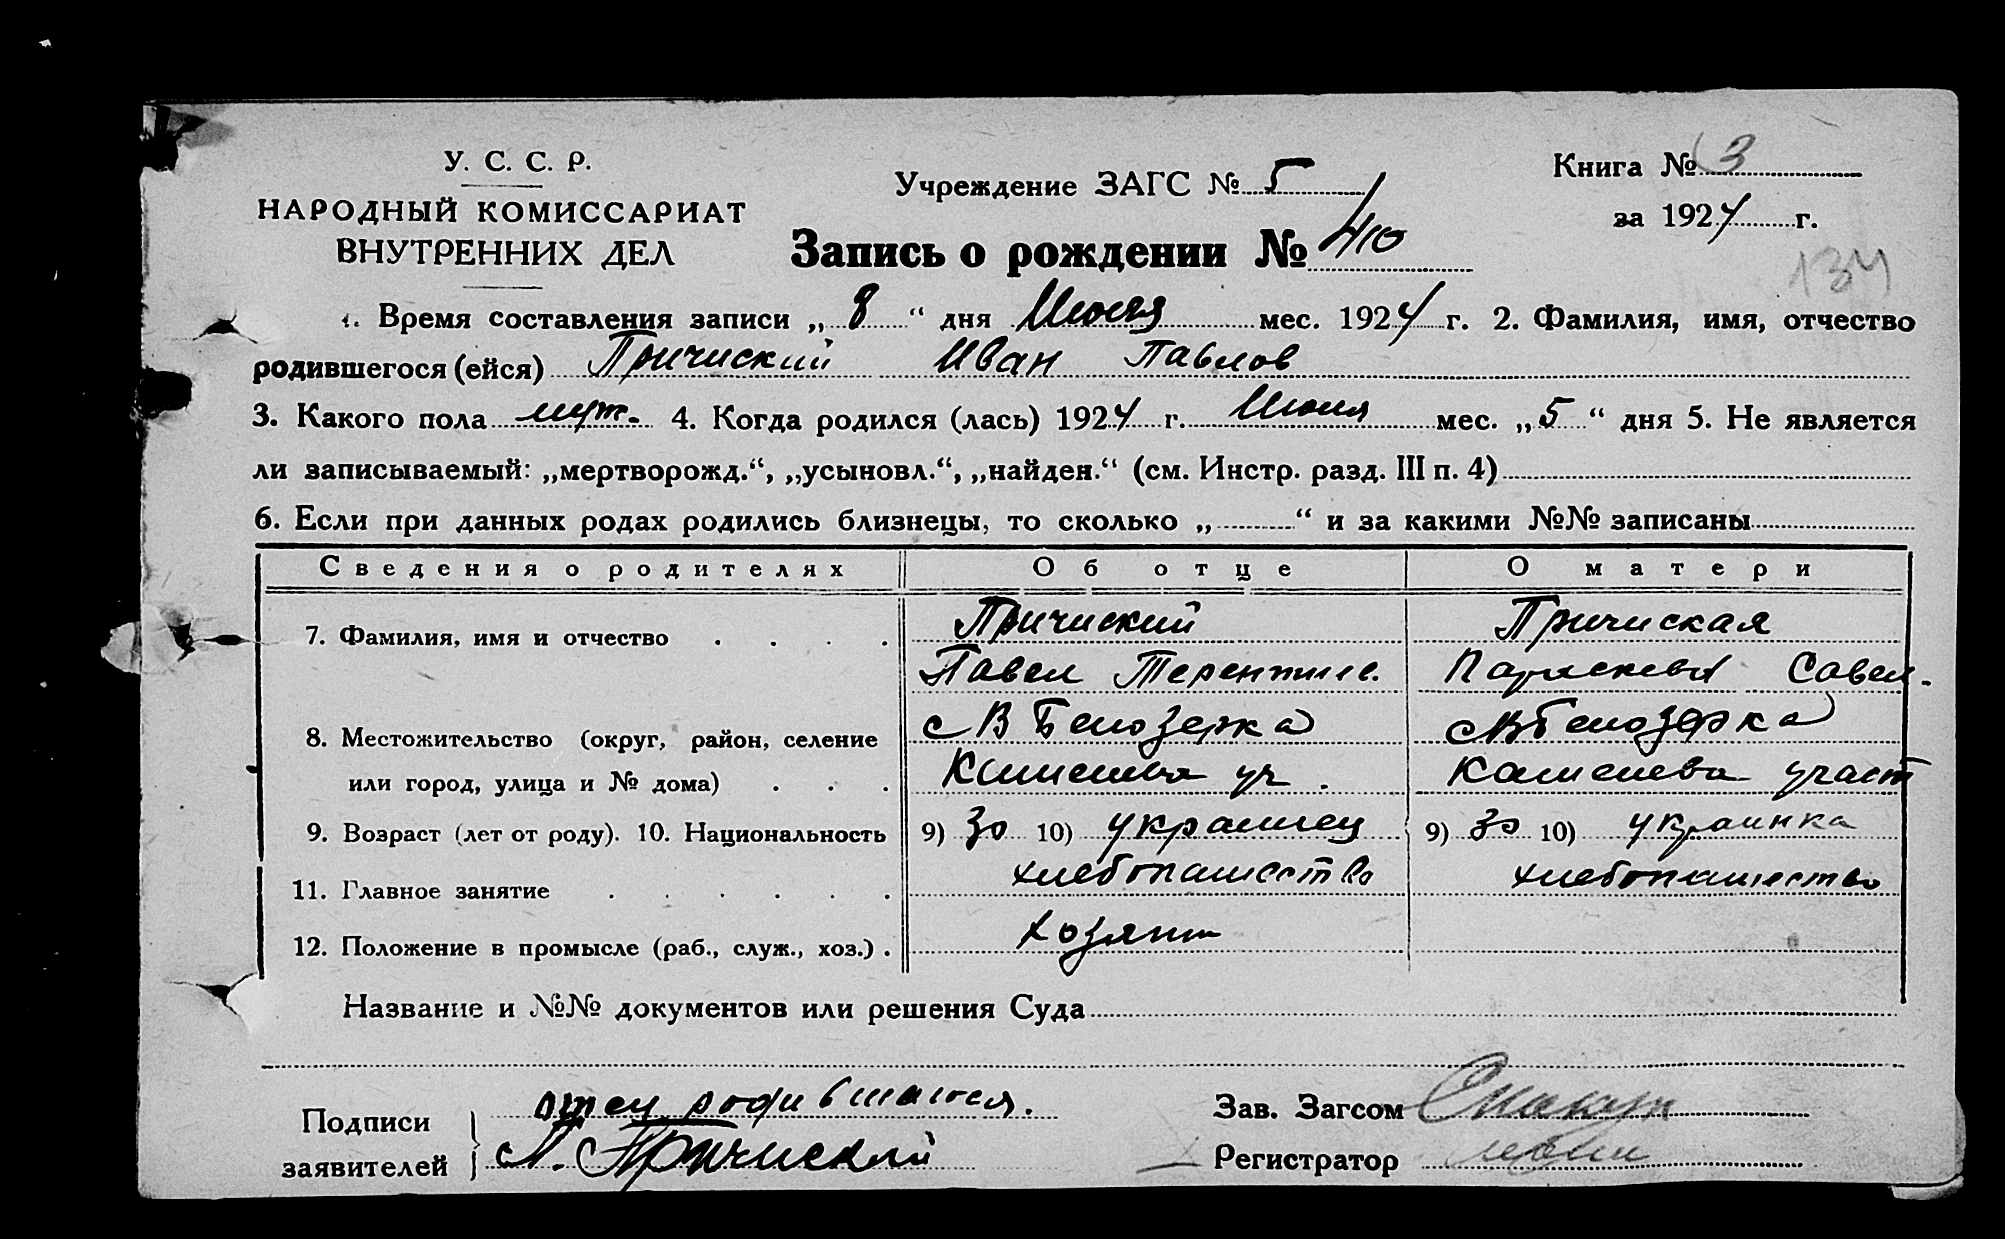 У. С. С. Р.
НАРОДНЫЙ КОМИССАРИАТ
ВНУТРЕННИХ ДЕЛ
Учреждение ЗАГС № 5
Книга № 3
за 1924 г.
Запись о рождении № 410
134
1. Время составления записи „ 8 “ дня Июня мес. 1924 г. 2. Фамилия, имя, отчество
родившегося (ейся) Причиский Иван Павлов
3. Какого пола муж. 4. Когда родился (лась) 1924 г. Июня мес. „ 5 “ дня 5. Не является
ли записываемый: „мертворожд.“, „усыновл.“, „найден.“ (см. Инстр. разд. III п. 4)
6. Если при данных родах родились близнецы, то сколько „ “ и за какими №№ записаны
Сведения о родителях Об отце О матери
7. Фамилия, имя и отчество . . . . Причиский Причиская
Павел Терентиев. Параскевья Савел.
8. Местожительство (округ, район, селение с В Белозерка с В Белозерка
или город, улица и № дома) . . . Камешева уч. Камешева участ
9. Возраст (лет от роду). 10. Национальность 9) 30 10) украинец 9) 30 10) украинка
11. Главное занятие . . . . . . хлебопашество хлебопашество
12. Положение в промысле (раб., служ., хоз.) . хозяин
Название и №№ документов или решения Суда
Подписи заявителей отец родившагося.
П. Причиский
Зав. Загсом
Регистратор